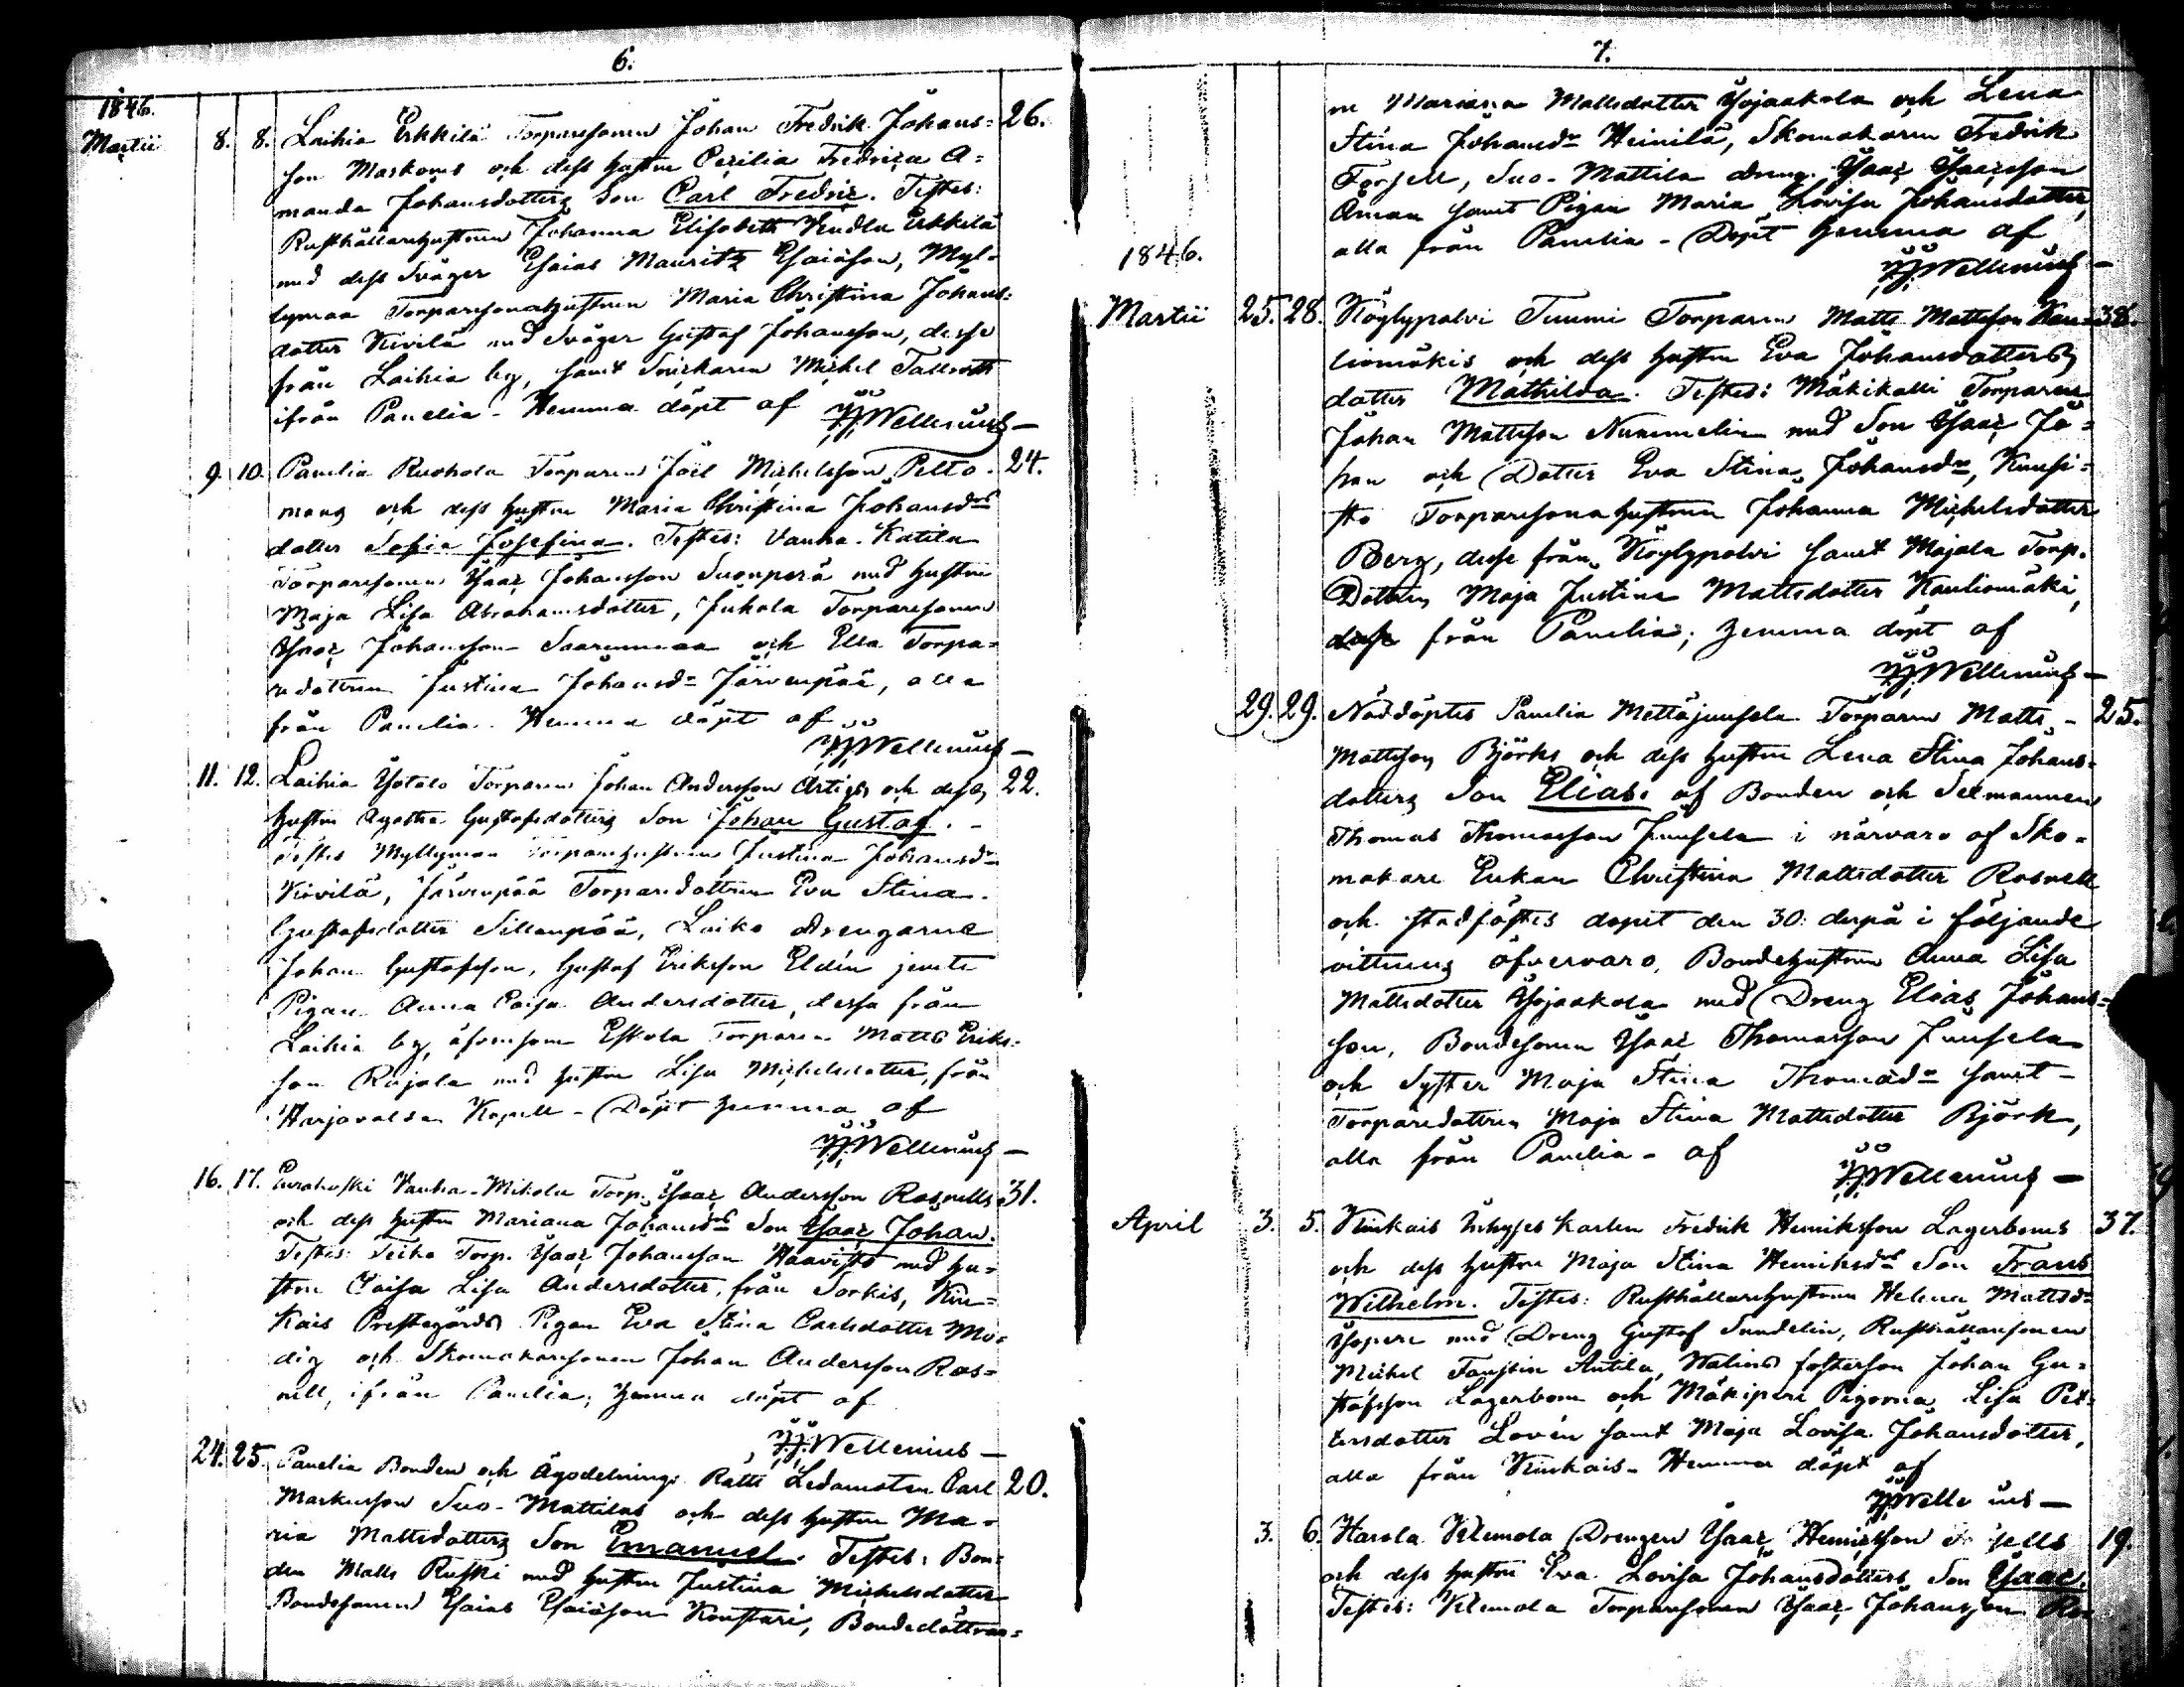 6.
1846.
Martii 8. 8. Laihia Erkkilä Torparesonen Johan Fredrik Johans= 26.
son Maskoms och dess hustru Cecilia Fredrica A=
manda Johansdotters Son Carl Fredric. Testes:
Rusthållarehustrun Johanna Elisabeth Erkkilä
med dess Svåger Esaias Mauritz Esaiäson, Myl-
lymaa Torparesonahustrun Maria Christina Johans=
dotter Kivilä med Svåger Gustaf Johansson, desse
från Laihia by, samt Snickaren Michel Tallroth
ifrån Panelia - Hemma döpt af
JJWellenius—
9. 10. Panelia Ruohola Torparen Joël Michelsson Pelto- 24.
mans och dess hustru Maria Christina Johansdrs
dotter Sofia Josefina. Testes: Vanha-Katila
Torparesonen Isaac Johansson Suonperä med hustru
Maja Lisa Abrahamsdotter, Juhola Torparesonen
Isaac Johansson Saarenmaa och Ella Torpa=
redottren Justina Johansdr Järvenpää, alla
från Panelia. Hemma döpt af
JJWellenius—
11. 12. Laihia Torparen Johan Andersson och dess 22.
hustru Agatha Gustafsdotters Son Johan Gustaf. -
Testes Myllymaa Torparehustrun Justina Johansdr
Kivilä, Järvenpää Torparedottren Eva Stina
Gustafsdotter Sillanpää, Laiko Drengarne
Johan Gustafsson, Gustaf Eriksson Eldén jemte
Pigan Anna Caisa Andersdotter, dessa från
Laihia by, äfvensom Eskola Torparen Matts Eriks-
son Rajala med hustru Lisa Michelsdotter, från
Harjavalda Kapell - Döpt hemma af
JJWellenius—
16. 17. Eurakoski Vanha-Mikola Torp. Isaac Andersson Rosnells 31.
och dess hustru Mariana Johansdrs Son Isaac Johan.
Testes: Torp. Isaac Johansson Haavisto med hu=
stru Caisa Lisa Andersdotter, från Sorkis, Kiu=
kais Prestegårds Pigan Eva Stina Carlsdotter Mo=
dig och Skomakaresonen Johan Andersson Ros=
nell, ifrån Panelia; hemma döpt af
JJWellenius—
24. 25. Panelia Bonden och Ägodelnings Rätts Ledamoten Carl 20.
Markusson Suo-Mattilas och dess hustru Ma-
ria Mattsdotters Son Emanuel. Testes: Bon=
den Matts Ruski med hustru Justina Michelsdotter
Bondesonen Esaias Esaiäson Konstari, Bondedöttrar=
7.
ne Mariana Mattsdotter Yojaakola och Lena
Stina Johansdr Heinilä, Skomakaren Fredrik
Forsell, Suo-Mattila dreng Isaac Isaacsson
Öman samt Pigan Maria Lovisa Johansdotter,
alla från Panelia - Döpt hemma af
JJWellenius—
1846.
Martii 25. 28. Köylypolvi Tuomi Torparen Matts Mattsson Kau- 38.
liomäkis och dess hustru Eva Johansdotters
dotter Mathilda. Testes: Mäkikalli Torparen
Johan Mattsson Nummelin med Son Isaac Jo=
han och Dotter Eva Stina Johansdr, Kuusi=
sto Torparesonahustrun Johanna Michelsdotter
Berg, desse från Köylypolvi samt Majala Torp.
Dottren Maja Justina Mattsdotter Kauliomäki,
från Panelia; hemma döpt af
JJWellenius—
29. 29. Nöddöptes Panelia Mettäjuusela Torparen Matts - 25.
Mattsson Björks och dess hustru Lena Stina Johans=
dotters Son Elias: af Bonden och Sexmannen
Thomas Thomasson Juusela i närvaro af Sko-
makare Enkan Christina Mattsdotter Rosnell
och stadfästes dopet den 30: derpå i följande
vittnens öfvervaro, Bondehustrun Anna Lisa
Mattsdotter Yojaakola med Dreng Elias Johans=
son, Bondesonen Isaac Thomasson Juusela
och Syster Maja Stina Thomasdr samt
Torparedottren Maja Stina Mattsdotter Björk,
alla från Panelia - af
JJWellenius—
April 3. 5. Kiukais Inhyses Karlen Fredrik Henriksson Lagerboms 37.
och dess hustru Maja Stina Henriksdrs Son Frans
Wilhelm. Testes: Rusthållarehustrun Helena Mattsdr
Yopere med Dreng Gustaf Sundelin, Rusthållaresonen
Michel Antila, fosterson Johan Gu=
stafsson Lagerbom och Mäkiperé Pigorna Lisa Pet-
tersdotter Lovén samt Maja Lovisa Johansdotter,
alla från Kiukais - Hemma döpt af
JJWellenius—
3. 6. Harola Klemola Drengen Isaac Henricsson 19.
och dess hustru Eva Lovisa Johansdotters Son Isaac.
Testes: Klemola Torparesonen Isaac Johansson